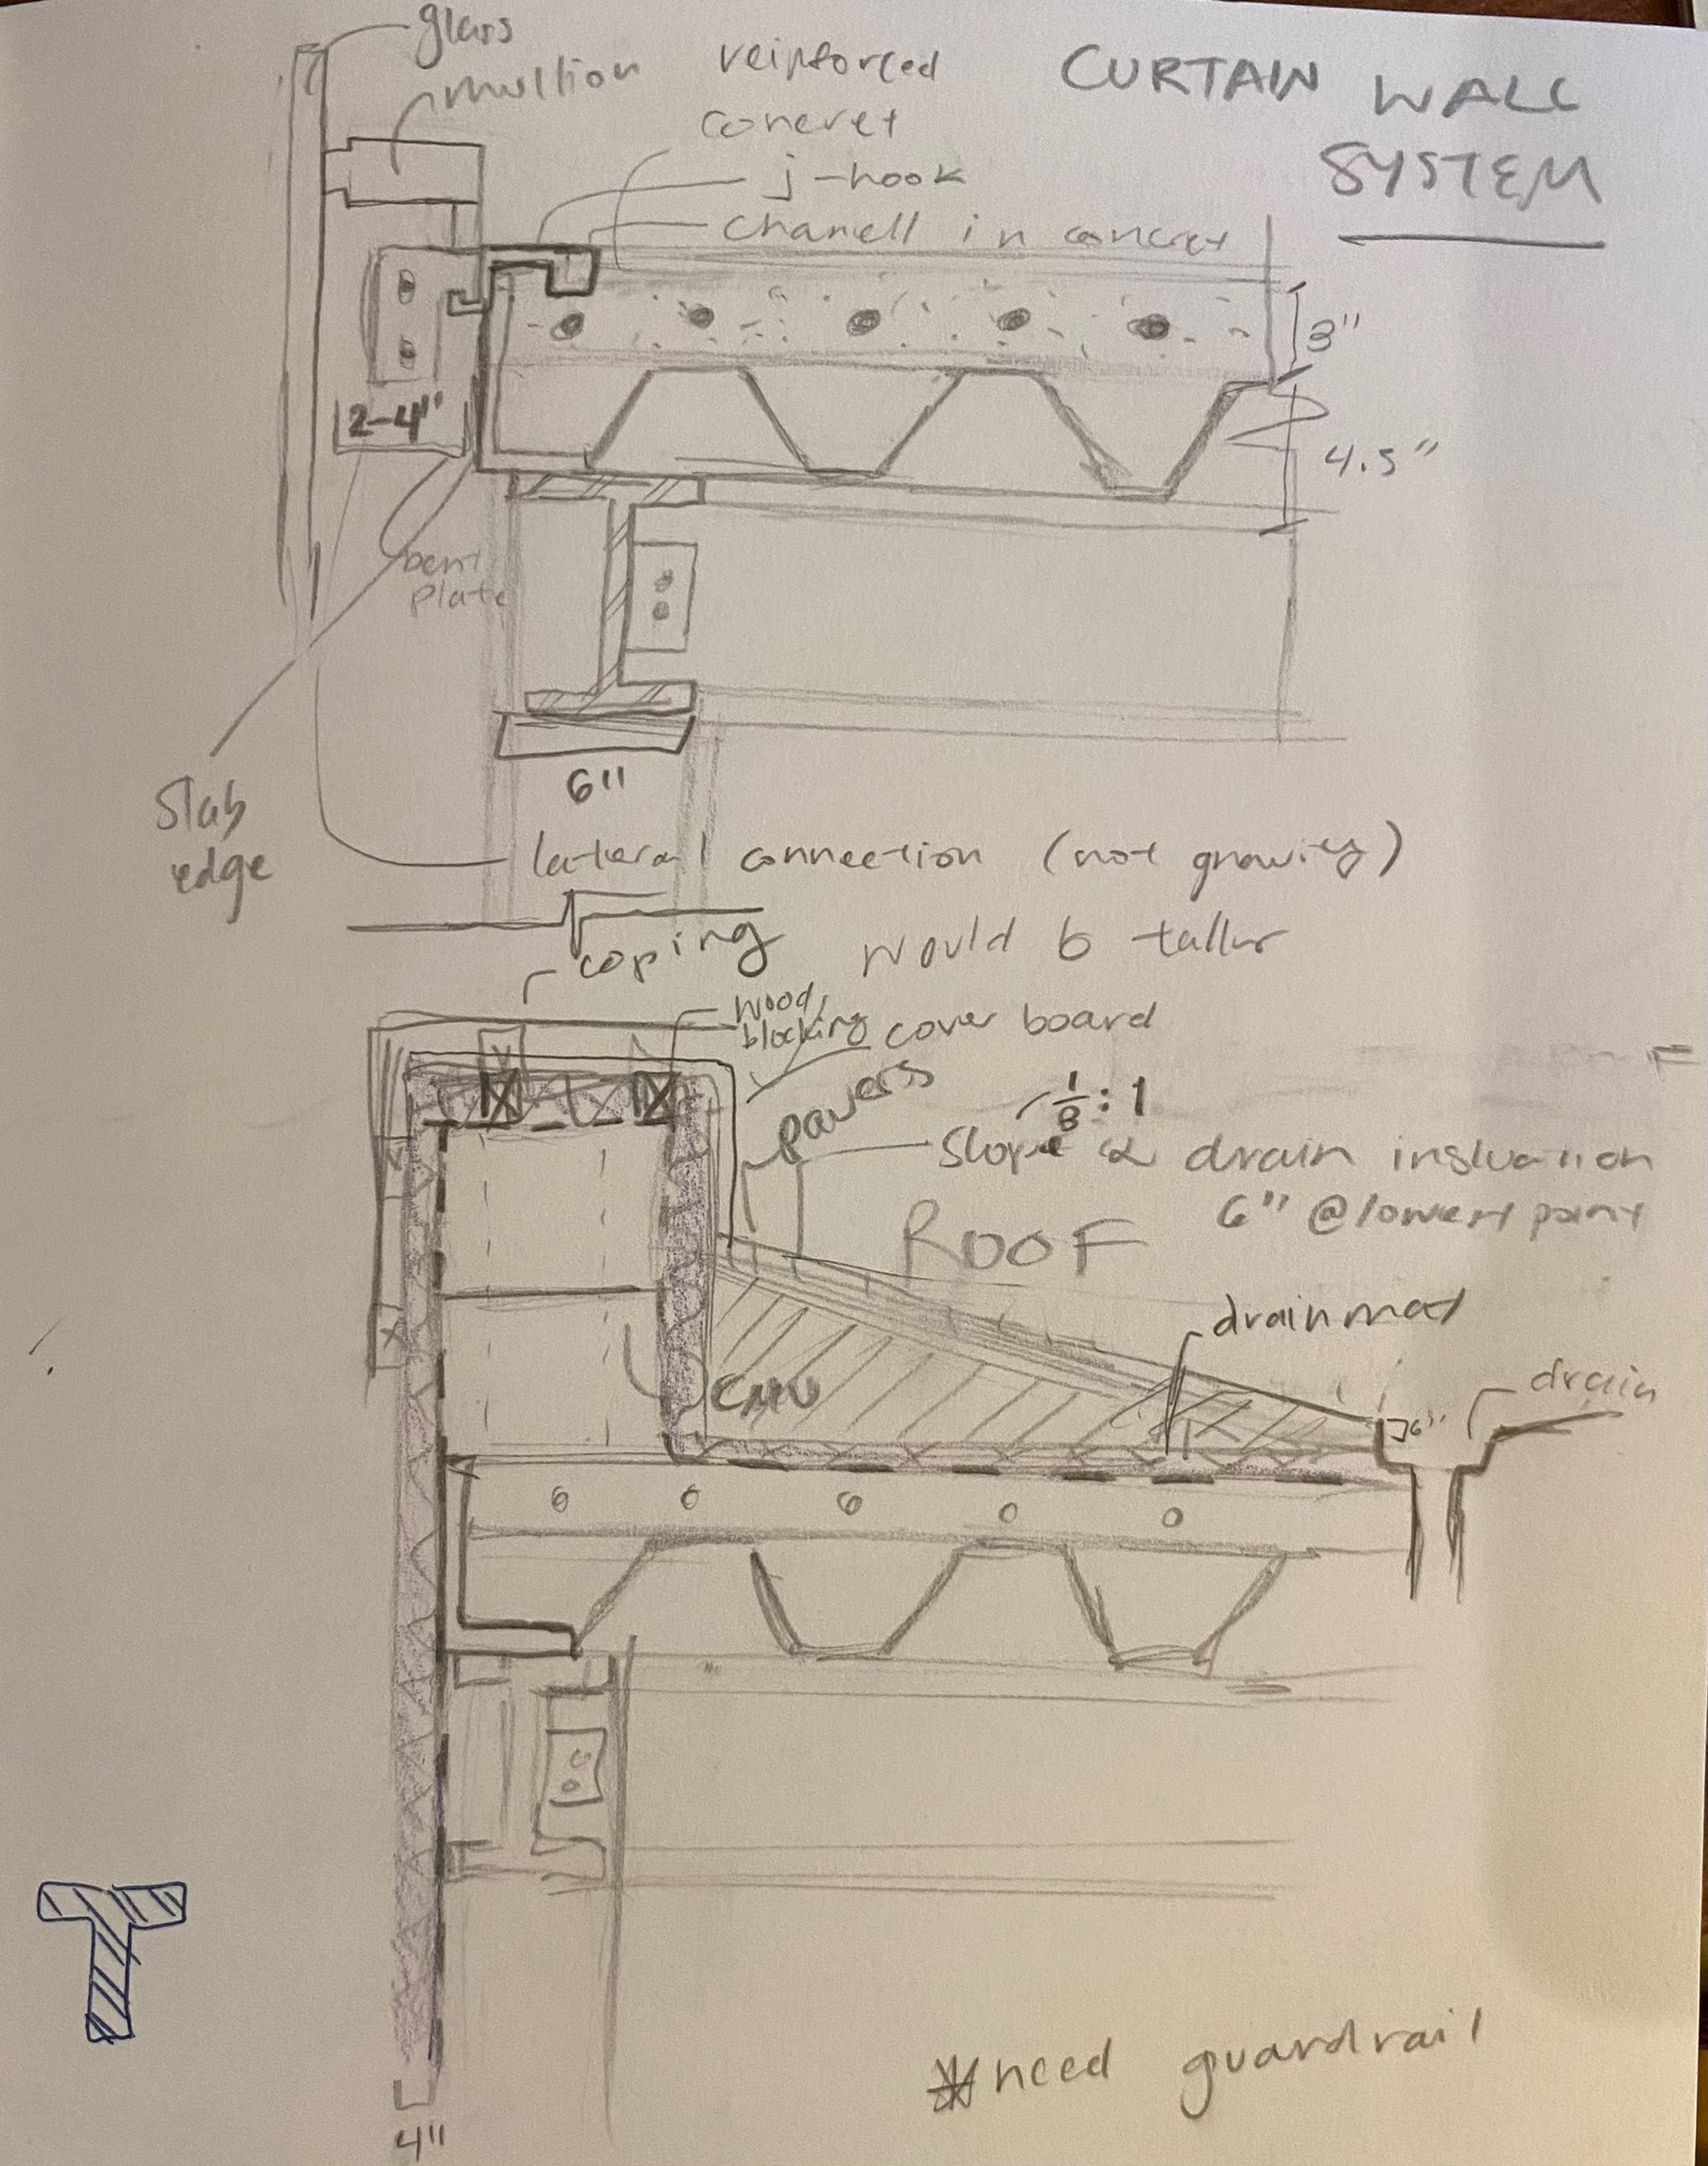 glass
mullion
reinforced
concret
j-hook
chanell in concret
CURTAIN WALL
SYSTEM
3"
4.5"
2-4"
bent
plate
6"
Slab
edge
lateral connection (not gravity)
coping
would b taller
wood
blocking
cover board
pavers
1/8:1
Slope & drain insluation
6" @ lowest point
ROOF
drain mat
drain
CMU
6"
*need guardrail
4"